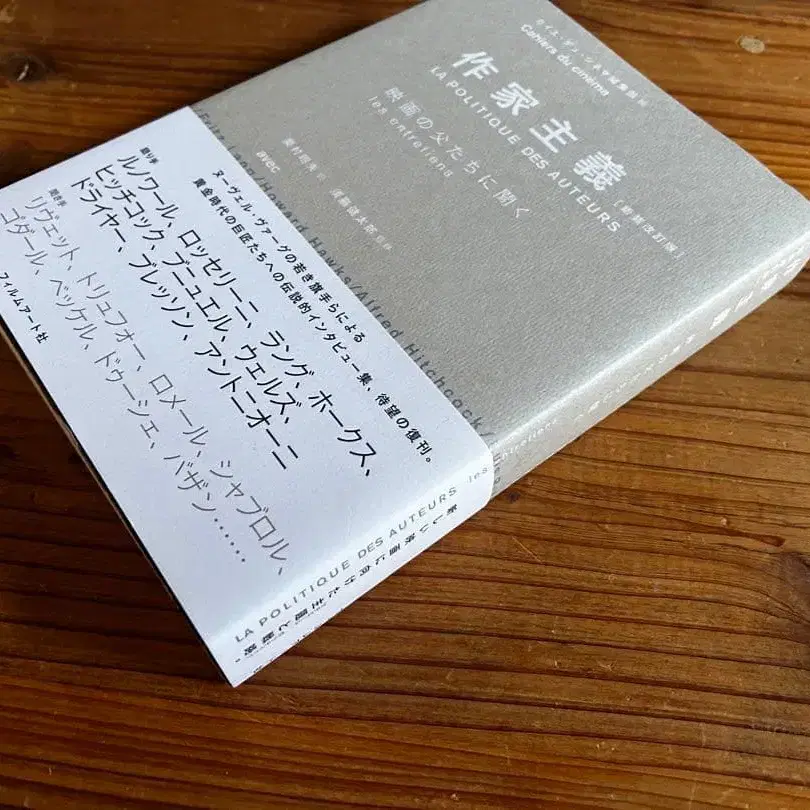 カイエ・デュ・シネマ編集部 編
Cahiers du cinéma
作家主義[新装改訂版]
LA POLITIQUE DES AUTEURS
映画の父たちに聞く
les entretiens
奥村昭夫 訳 須藤健太郎
avec
Fritz Lang/Howard Hawks/Alfred Hitchcock/
ヌーヴェル・ヴァーグの若き旗手らによる
黄金時代の巨匠たちへの伝説的インタビュー集、待望の復刊。
語り手
ルノワール、ロッセリーニ、ラング、ホークス、
ヒッチコック、ブニュエル、ウェルズ、
ドライヤー、ブレッソン、アントニオーニ
聞き手
リヴェット、トリュフォー、ロメール、シャブロル、
ゴダール、ベッケル、ドゥーシェ、バザン……
フィルムアート社
LA POLITIQUE DES AUTEURS les entretiens